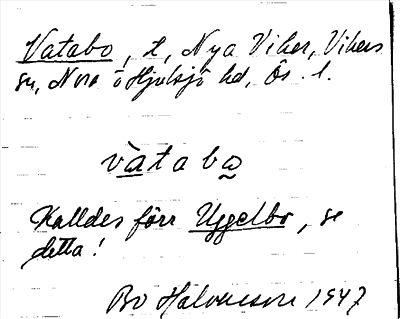 Vatabo, t, Nya Viker, Vikers
sn, Nora o Hjulsjö hd, Ös. l.
vataba
Kalldes förr Uggelbo, se
detta!
Bo Halvarsson 1947